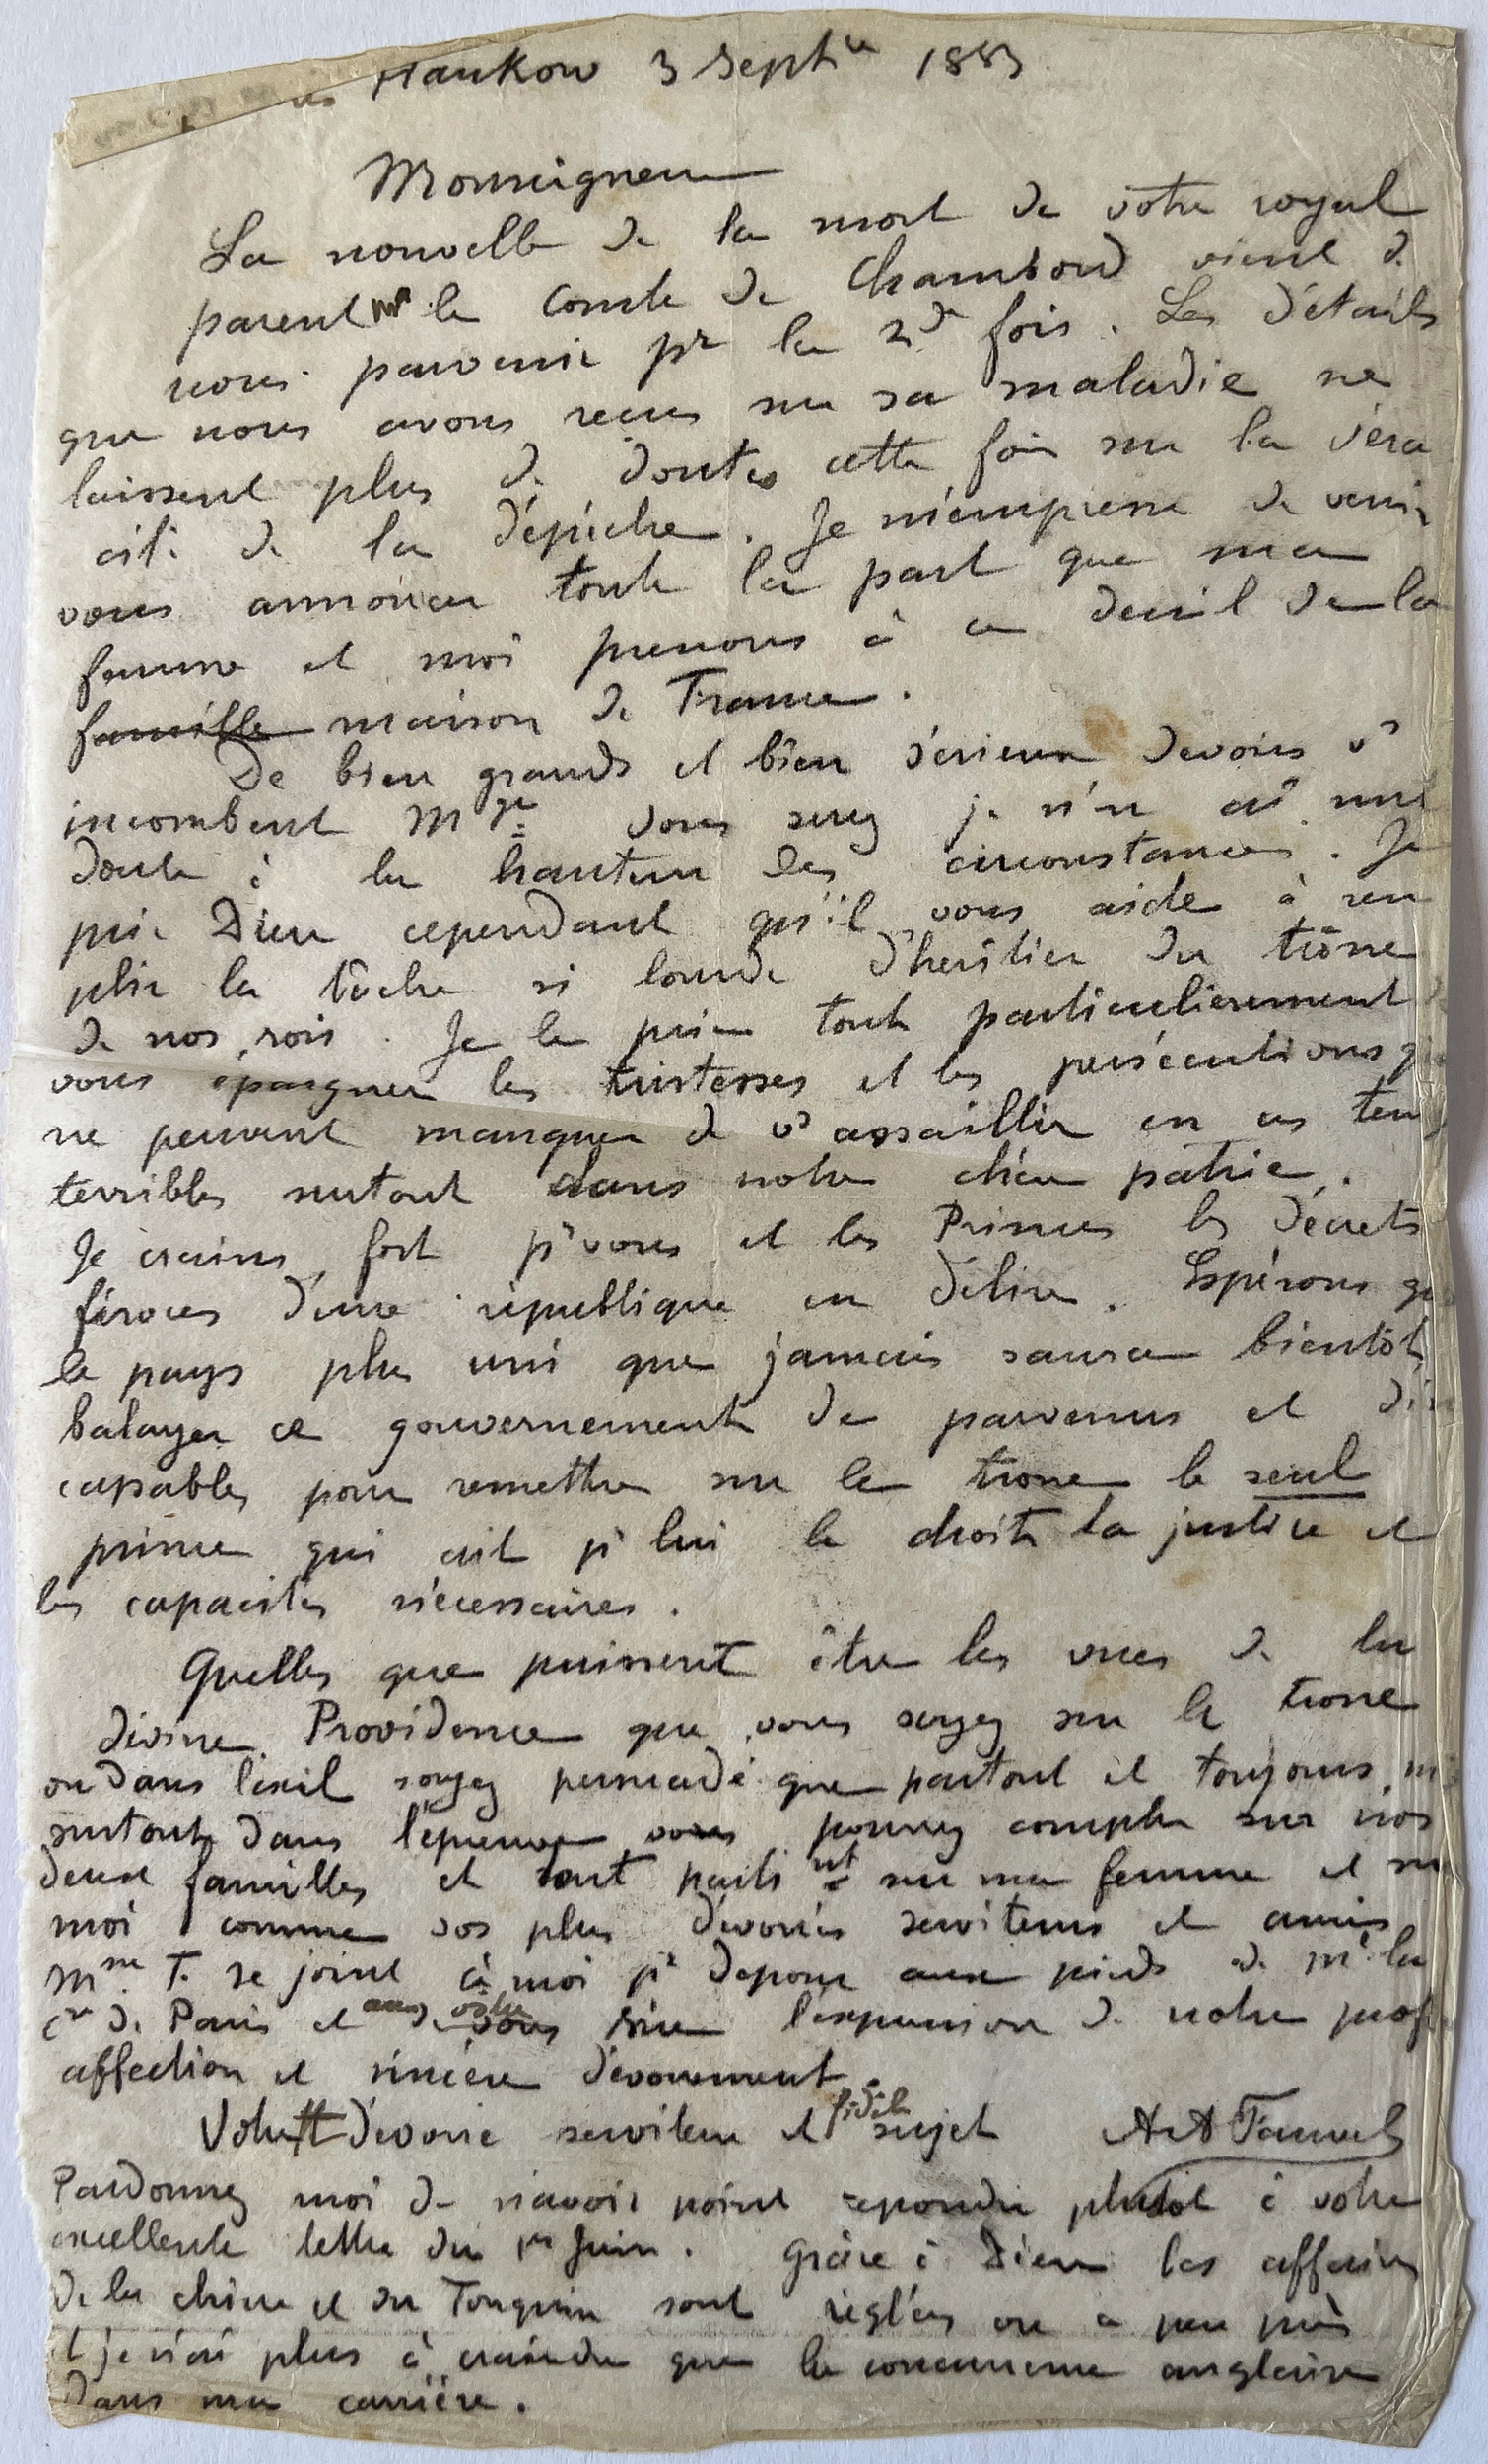 Hankow 3 Septre 1883
Monseigneur
La nouvelle de la mort de votre royal
parent Mr le Comte de Chambord vient de
nous parvenir pr la 2de fois. Les détails
que nous avons reçus sur sa maladie ne
laissent plus de doutes cette fois sur la véra
cité de la dépêche. Je m'empresse de venir
vous annoncer toute la part que ma
femme et moi prenons à ce deuil de la
famille maison de France.
De bien grands et bien sérieux devoirs vs
incombent Mgr vous serez je n'en ai nul
doute à la hauteur des circonstances. Je
prie Dieu cependant qu'il vous aide à rem
plir la tâche si lourde d'héritier du trône
de nos rois. Je le prie tout particulièrement de
vous épargner les tristesses et les persécutions qui
ne peuvent manquer de vs assaillir en ces temps
terribles surtout dans notre chère patrie.
Je crains fort pr vous et les Princes les décrets
féroces d'une république en délire. Espérons que
le pays plus uni que jamais saura bientôt
balayer ce gouvernement de parvenus et d'in
capables pour remettre sur le trone le seul
prince qui ait pr lui le droit la justice et
les capacités nécessaires.
Quelles que puissent être les vues de la
divine Providence que vous soyez sur le trone
ou dans l'exil soyez persuadé que partout et toujours, mais
surtout dans l'épreuve vous pourrez compter sur nos
deux familles et tout partint sur ma femme et sur
moi comme vos plus dévoués serviteurs et amis
Mme F. se joint à moi pr déposer aux pieds de Me la
Csse de Paris et aux vôtres l'expression de notre prof
affection et sincère dévouement.
Votre dévoué serviteur et fidèle sujet AA Fauvel
Pardonnez moi de n'avoir point repondu plutôt à votre
excellente lettre du 1er Juin. Grâce à Dieu les affaires
de la chine et du Tonquin sont réglées ou a peu près
et je n'ai plus à craindre que la concurrence anglaise
dans ma carrière.